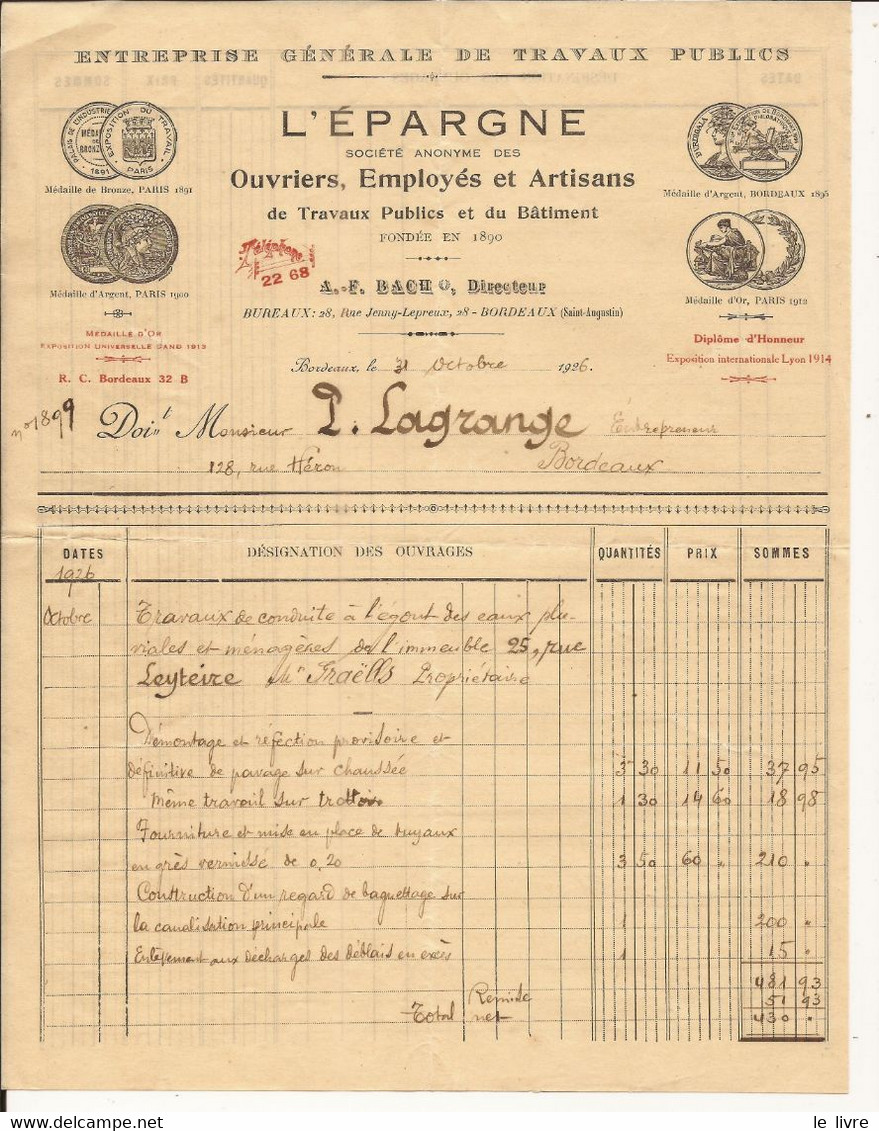 ENTREPRISE GÉNÉRALE DE TRAVAUX PUBLICS
L'ÉPARGNE
SOCIÉTÉ ANONYME DES
Ouvriers, Employés et Artisans
de Travaux Publics et du Bâtiment
FONDÉE EN 1890
Téléphone
22 68
A.-F. BACH, Directeur
BUREAUX: 28, Rue Jenny-Lepreux, 28 - BORDEAUX (Saint-Augustin)
PALAIS DE L'INDUSTRIE
MÉDAILLE DE BRONZE
1891
EXPOSITION DU TRAVAIL
PARIS
Médaille de Bronze, PARIS 1891
Médaille d'Argent, PARIS 1900
MÉDAILLE D'OR
EXPOSITION UNIVERSELLE GAND 1913
R. C. Bordeaux 32 B
Médaille d'Argent, BORDEAUX 1895
Médaille d'Or, PARIS 1912
Diplôme d'Honneur
Exposition internationale Lyon 1914
Bordeaux, le 31 Octobre 1926.
n° 1899
Doit Monsieur P. Lagrange Entrepreneur
128, rue Héron Bordeaux
DATES DÉSIGNATION DES OUVRAGES QUANTITÉS PRIX SOMMES
1926
Octobre Travaux de conduite à l'égout des eaux plu-
viales et ménagères de l'immeuble 25, rue
Leyteire Mr Fraëlls Propriétaire
Démontage et réfection provisoire et
définitive de pavage sur chaussée 3 30 11 50 37 95
Même travail sur trottoir 1 30 14 60 18 98
Fourniture et mise en place de tuyaux
en grès vernisse de 0,20 3 50 60 " 210 "
Construction d'un regard de baguettage sur
la canalisation principale 1 200 "
Enlèvement aux décharges des déblais en excès 1 15 "
481 93
Remise 51 93
Total net 430 "
le livre